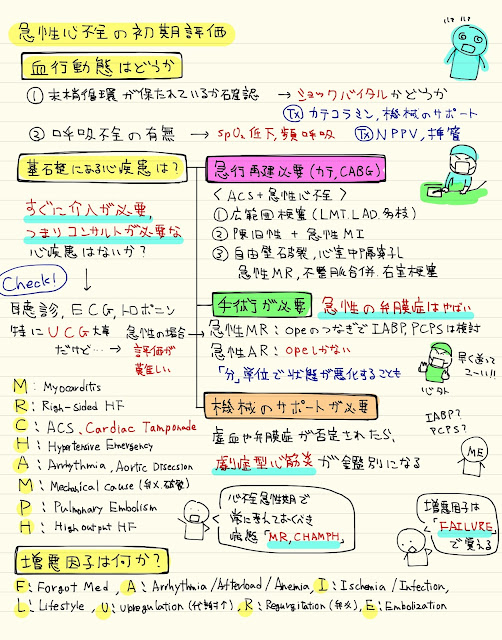 急性心不全の初期評価
血行動態はどうか
① 末梢循環が保たれているか確認 → ショックバイタルかどうか
Tx カテコラミン, 機械のサポート
② 呼吸不全の有無 → SpO₂低下, 頻呼吸 Tx NPPV, 挿管
基礎にある心疾患は?
すぐに介入が必要,
つまりコンサルトが必要な
心疾患はないか?
Check!
聴診, ECG, トロポニン
特にUCG大事
だけど…→
急性の場合
評価が
難しい
急行再建必要(カテ, CABG)
〈ACS+急性心不全〉
① 広範囲梗塞(LMT, LAD, 多枝)
② 陳旧性+急性MI
③ 自由壁破裂, 心室中隔穿孔
急性MR, 不整脈合併, 右室梗塞
手術が必要 急性の弁膜症はやばい
急性MR:opeのつなぎでIABP, PCPSは検討
急性AR:opeしかない
「分」単位で状態が悪化することも
早く送ってこーい!!
心外
機械のサポートが必要
虚血や弁膜症が否定されたら,
劇症型心筋炎が鑑別になる
IABP?
PCPS?
ME
M:Myocarditis
R:Righ-sided HF
C:ACS, Cardiac Tamponade
H:Hypertensive Emergency
A:Arrhythmia, Aortic Dissection
M:Mechanical cause(弁, 破裂)
P:Pulmonary Embolism
H:High output HF
心不全急性期で
常に考えておくべき
病態「MR, CHAMPH」
増悪因子は
「FAILURE」
で覚える
増悪因子は何か?
F:Forgot Med, A:Arrhythmia/Afterload/Anemia, I:Ischemia/Infection,
L:Lifestyle, U:Upregulation(代謝↑), R:Regurgitation(弁), E:Embolization